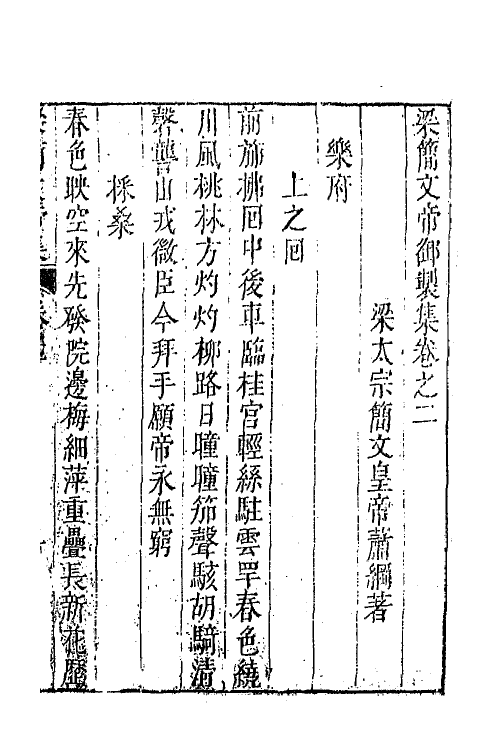 梁簡文帝御製集卷之二
梁太宗簡文皇帝蕭綱著
樂府
上之囘
前旆拂囘中後車臨桂宮輕絲駐雲罕春色繞
川風桃林方灼灼柳路日曈曈笳聲駭胡騎清
磬讋山戎微臣今拜手願帝永無窮
採桑
春色映空來先發院邊梅細萍重疊長新花歷